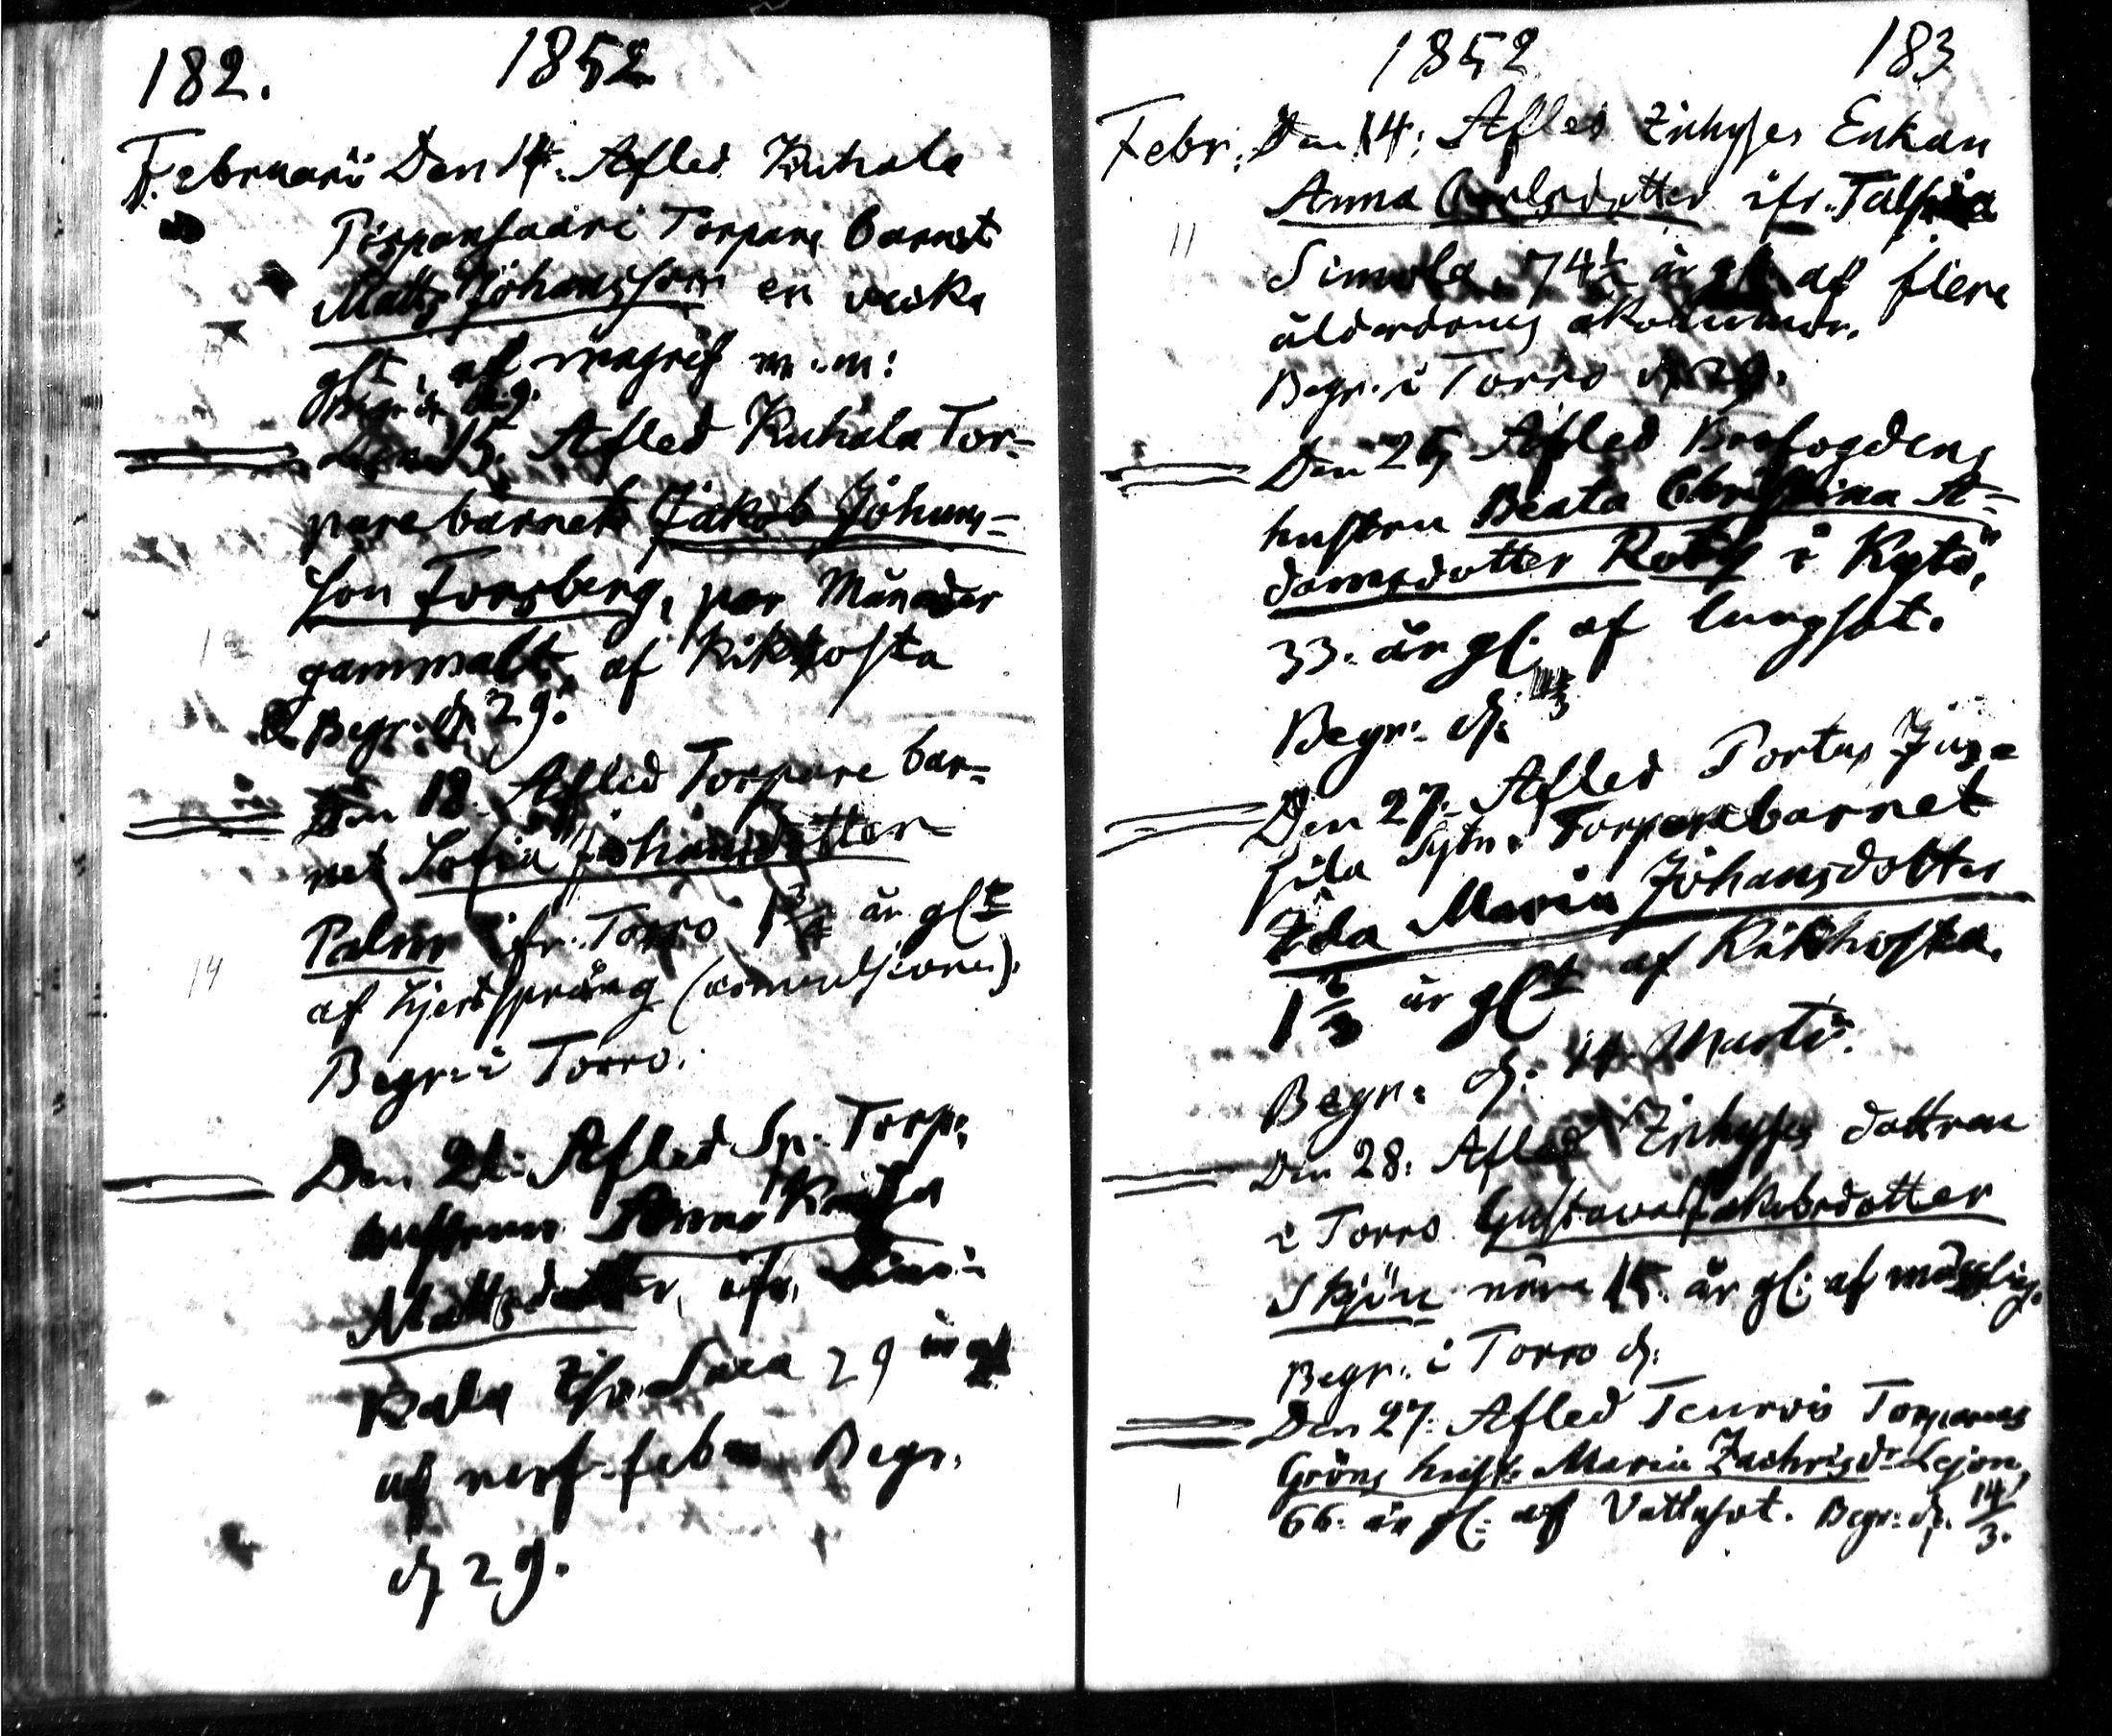 182. 1852
Februarii Den 14. Afled Kuhala
Torpare barnet
Matts Johansson en vecka
glt, af magref m.m:
Begr. d. 29.
Den 15. Afled Kuhala Tor-
pare barnet Jakob Johans-
son Forsberg, par Månader
gammalt, af Kikhosta
Begr. d. 29.
Den 18. Afled Torpare bar-
net Sofia Johansdotter
Palm ifr. Torro 1 3/4 år glt
af (convulsioner).
Begr. i Torro.
Den 21. Afled Sp. Torp.
hustrun Anna Kajsa
Mattsdotter, ifr.
29 år gl
af nerf feber Begr.
d. 29.
1852 183
Febr. Den 14. Afled Inhyses Enkan
Anna Carlsdotter ifr.
Simola, 74 1/2 år gl. af flere
ålderdoms åkommor.
Begr. i Torro d. 29.
Den 25 Afled Brofogdens
hustru Beata Christina A-
damsdotter Roth i Kytö,
33. år gl. af lungsot.
Begr. d.
Den 27. Afled Portas Jus-
sila Sytn. Torparebarnet
Ida Maria Johansdotter
1 2/3 år glt af Kikhosta.
Begr. d. 14 Martii.
Den 28. Afled Inhyses dottren
i Torro Gustava Jakobsdotter
Skjön nära 15. år gl. af mässling.
Begr. i Torro d.
Den 27. Afled Teuro Torparens
Gröns hust. Maria Zachrisdr Lejon,
66. år gl. af Vattusot. Begr. d. 14/3.